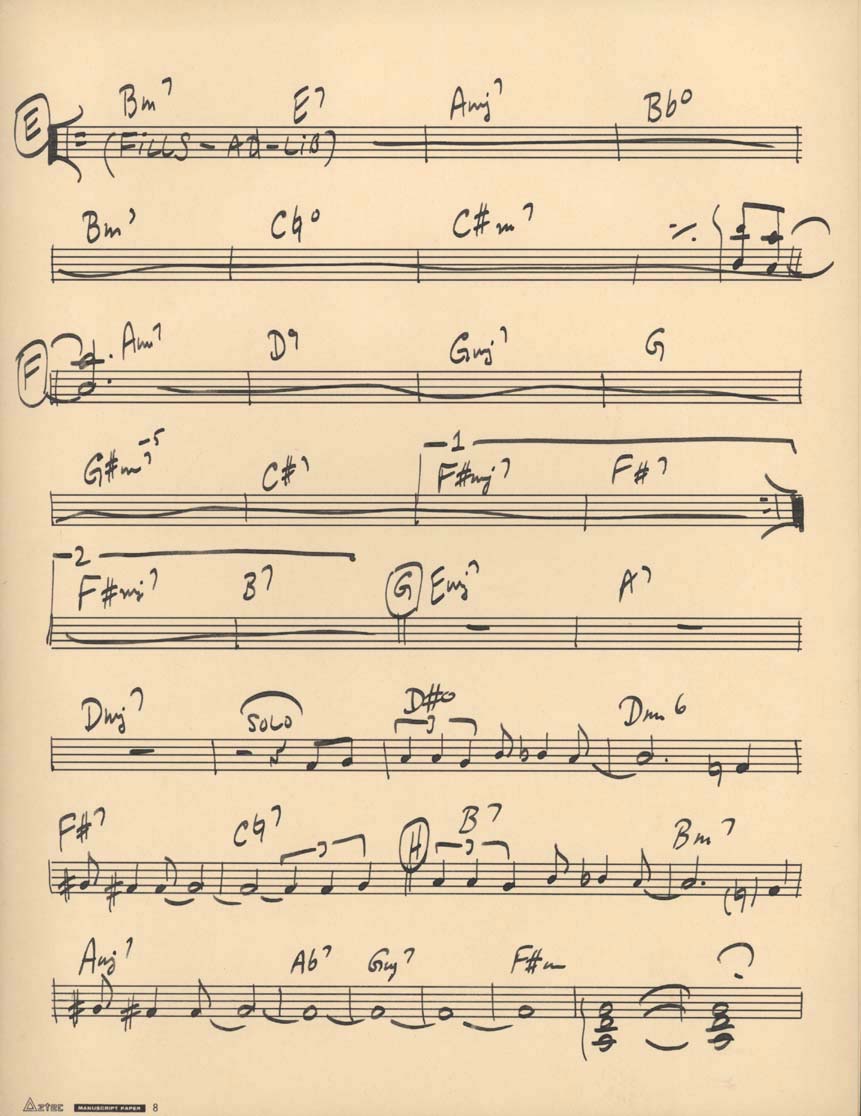 E Bm7 E7 Amj7 Bb°
(FiLLS - AD-LiB)
Bm7 C♮° C#m7 ٪
F Am7 D9 Gmj7 G
G#m7-5 C#7 1 F#mj7 F#7
2 F#mj7 B7 G Emj7 A7
Dmj7 SOLO D#° Dm6
3
F#7 C♮7 H B7 Bm7
3 3
Amj7 Ab7 Gmj7 F#m
AZTEC MANUSCRIPT PAPER 8